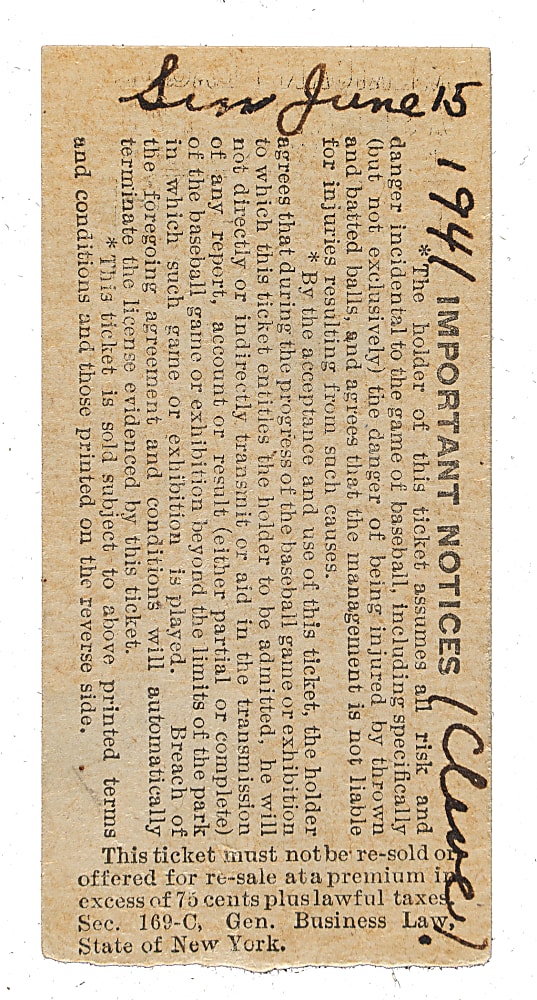 Sun June 15
1941
(Cleve).
IMPORTANT NOTICES
*The holder of this ticket assumes all risk and
danger incidental to the game of baseball, including specifically
(but not exclusively) the danger of being injured by thrown
and batted balls, and agrees that the management is not liable
for injuries resulting from such causes.
*By the acceptance and use of this ticket, the holder
agrees that during the progress of the baseball game or exhibition
to which this ticket entitles the holder to be admitted, he will
not directly or indirectly transmit or aid in the transmission
of any report, account or result (either partial or complete)
of the baseball game or exhibition beyond the limits of the park
in which such game or exhibition is played. Breach of
the foregoing agreement and conditions will automatically
terminate the license evidenced by this ticket.
*This ticket is sold subject to above printed terms
and conditions and those printed on the reverse side.
This ticket must not be re-sold or
offered for re-sale at a premium in
excess of 75 cents plus lawful taxes.
Sec. 169-C, Gen. Business Law,
State of New York.